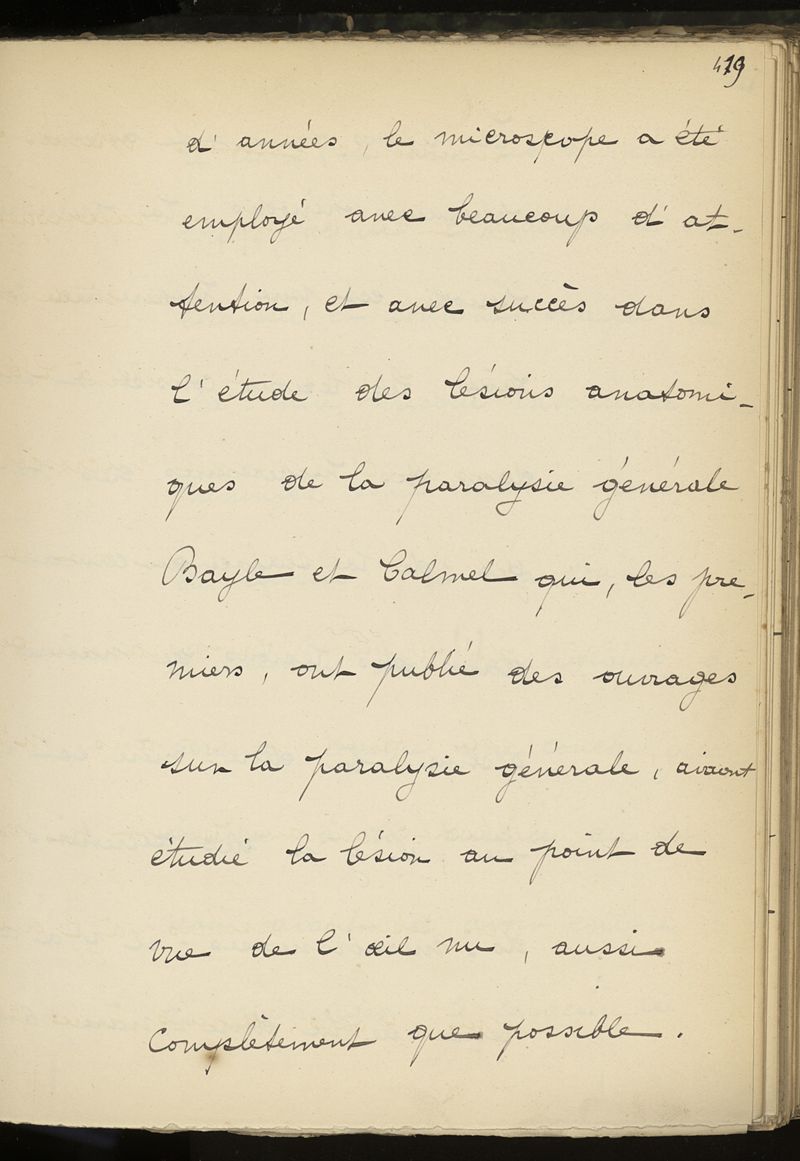 419
d'années, le microscope a été
employé avec beaucoup d'at-
tention, et avec succès dans
l'étude des lésions anatomi-
ques de la paralysie générale
Bayle et Calmel qui, les pre-
miers, ont publié des ouvrages
sur la paralysie générale, avaient
étudié la lésion au point de
vue de l'œil nu, aussi
complètement que possible.